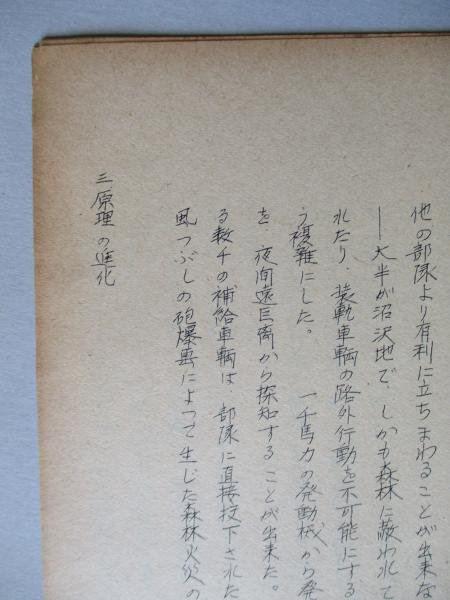 他の部隊より有利に立ちまわることが出来な
──大半が沼沢地で、しかも森林に蔽われて
れたり、装軌車輌の路外行動を不可能にする
う複雑にした。　一千馬力の発動機から発
を、夜間遠距離から探知することが出来た。
る数千の補給車輌は、部隊に直接投下された
風つぶしの砲爆撃によって生じた森林火災の
三原理の進化